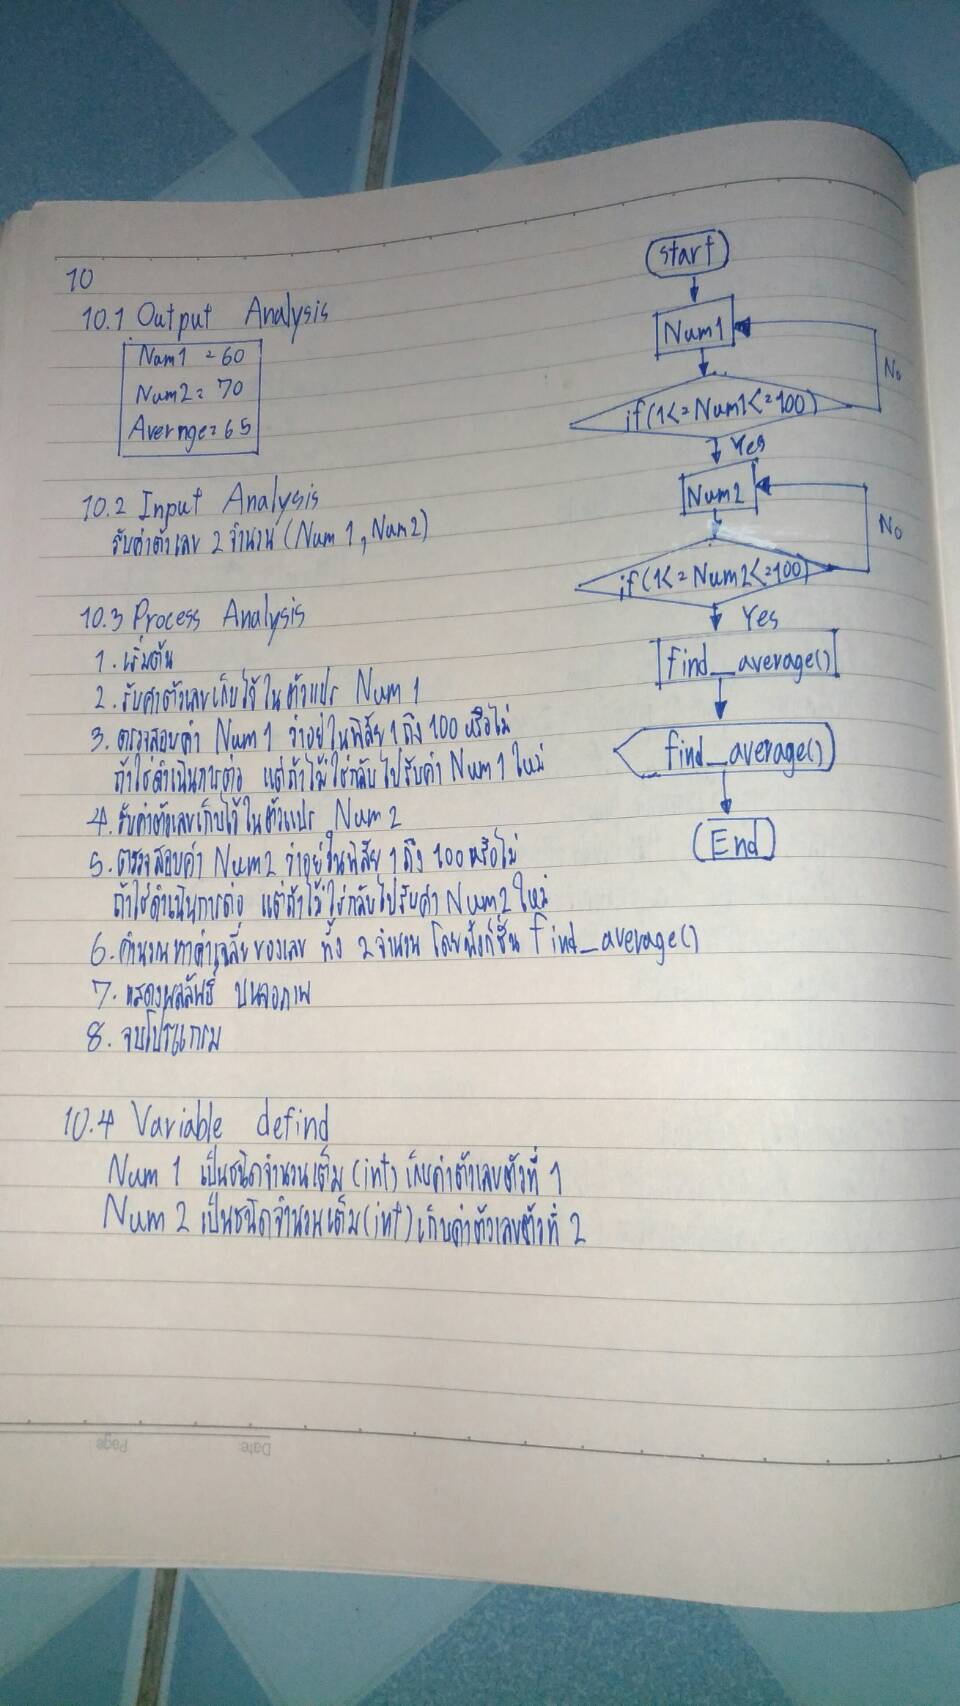 10
10.1 Output Analysis
Num1 = 60
Num2 = 70
Average = 65
10.2 Input Analysis
รับค่าตัวเลข 2 จำนวน (Num 1, Num2)
10.3 Process Analysis
1. เริ่มต้น
2. รับค่าตัวเลขเก็บไว้ในตัวแปร Num 1
3. ตรวจสอบค่า Num 1 ว่าอยู่ในพิสัย 1 ถึง 100 หรือไม่
ถ้าใช่ดำเนินการต่อ แต่ถ้าไม่ใช่กลับไปรับค่า Num 1 ใหม่
4. รับค่าตัวเลขเก็บไว้ในตัวแปร Num 2
5. ตรวจสอบค่า Num2 ว่าอยู่ในพิสัย 1 ถึง 100 หรือไม่
ถ้าใช่ดำเนินการต่อ แต่ถ้าไม่ใช่กลับไปรับค่า Num 2 ใหม่
6. คำนวณหาค่าเฉลี่ยของเลข ทั้ง 2 จำนวน โดยฟังก์ชั่น find_average()
7. แสดงผลลัพธ์ บนจอภาพ
8. จบโปรแกรม
10.4 Variable defind
Num 1 เป็นชนิดจำนวนเต็ม (int) เก็บค่าตัวเลขตัวที่ 1
Num 2 เป็นชนิดจำนวนเต็ม (int) เก็บค่าตัวเลขตัวที่ 2
start
Num1
if(1<=Num1<=100)
No
Yes
Num2
if(1<=Num2<=100)
No
Yes
find_average()
find_average()
End
Date:
Page